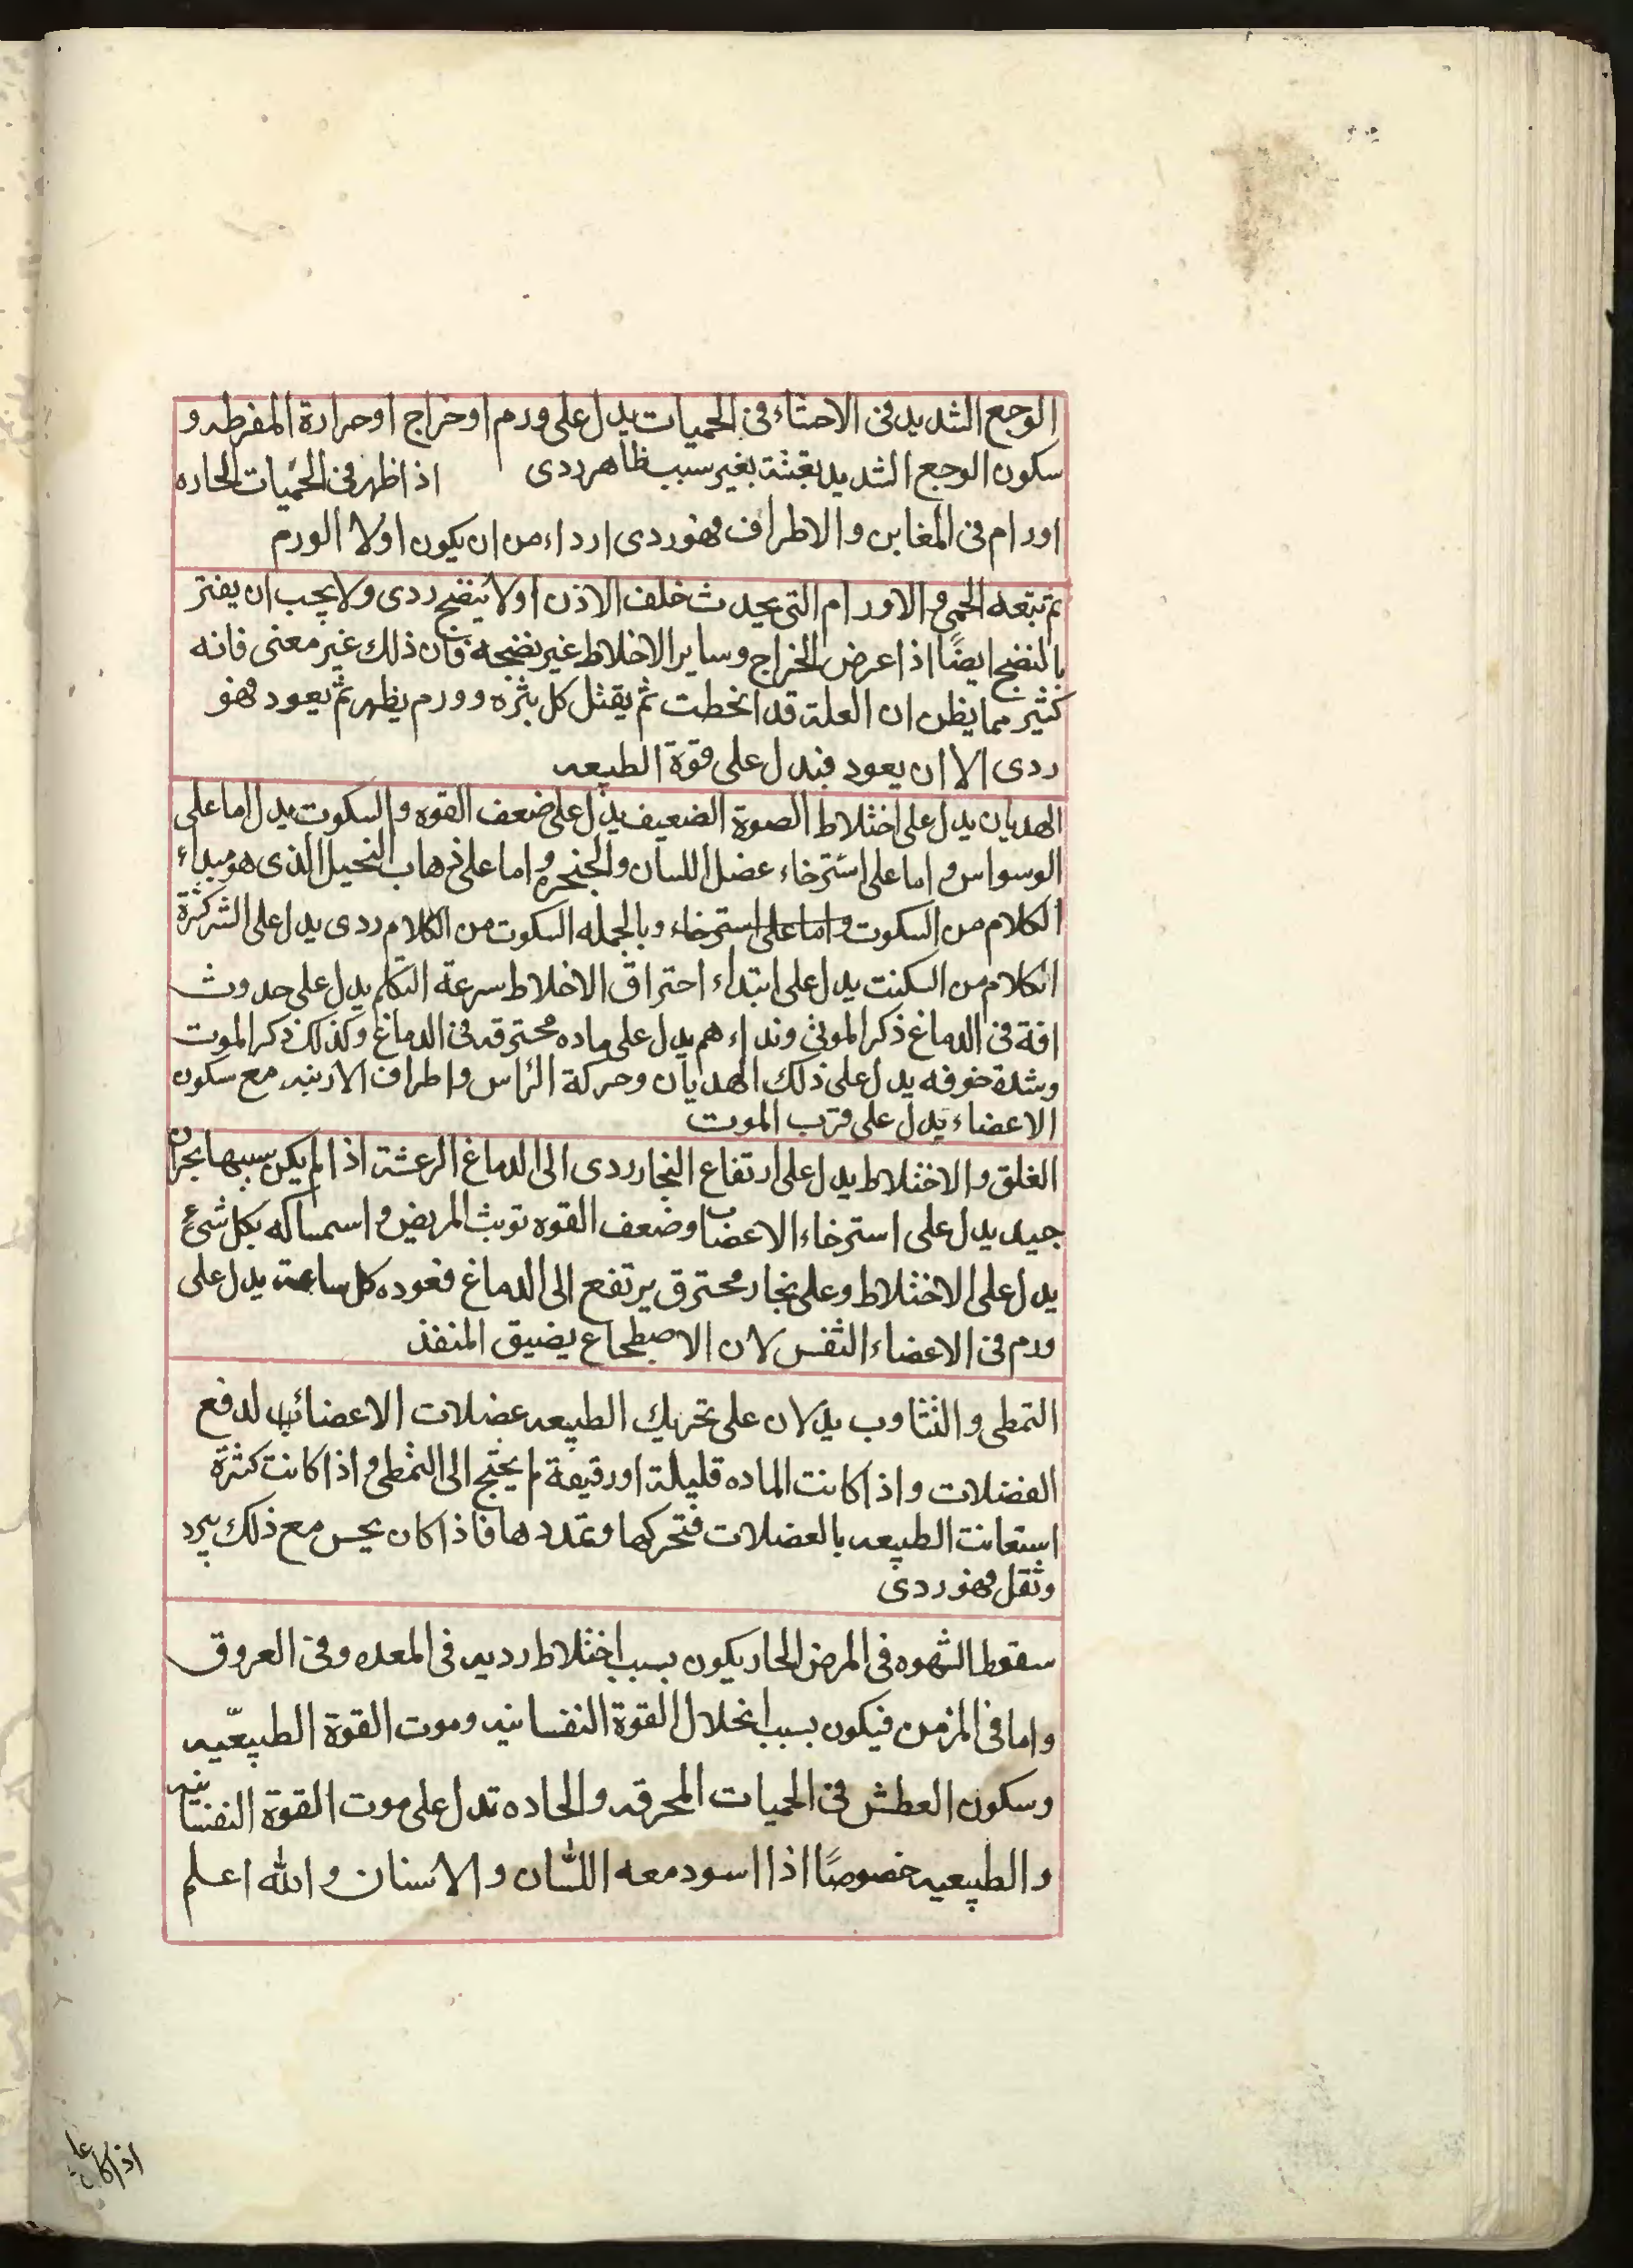 الوجع الشديد فى الاحشاء فى الحميات يدل على ورم او خراج او حرارة المفرطه و
سكون الوجع الشديد بغثة بغير سبب ظاهر ردى اذا ظهر فى الحميات الحاده
اورام فى المغابن والاطراف فهو ردى ارداء من ان يكون اولا الورم
ثم تبتعه الحمى والاورام التى يحدث خلف الاذن اولا ينضج ردى ولا يجب ان يفتر
بالنضج ايضًا اذا عرض الخراج وساير الاخلاط غير نضجه فان ذلك غير معنى فانه
كثير مما يظن ان العلة قد انحطت ثم يقتل كل بثره وورم يظهر ثم يعود فهو
ردى الا ان يعود فيدل على قوة الطبيعه
الهديان يدل على اختلاط الصوة الضعيف يدل على ضعف القوه والسكوت يدل اما على
الوسواس واما على استرخاء عضل اللسان والحنجره واما على ذهاب التخيل الذى هو مبداء
الكلام من السكوت واما على استرخاء وبالجمله السكوت من الكلام ردى يدل على الشر كثرة
الكلام من السكيت يدل على ابتداء احتراق الاخلاط سرعة التكلم يدل على حدوث
افة فى الدماغ ذكر الموتى ونداءهم يدل على ماده محترقه فى الدماغ وكذلك ذكر الموت
وشدة خوفه يدل على ذلك الهديان وحركة الراس واطراف الارنبه مع سكون
الاعضاء يدل على قرب الموت
الغلق والاختلاط يدل على ارتفاع البخار ردى الى الدماغ الرعشة اذا لم يكن سببها بحران
جيد يدل على استرخاء الاعضاب وضعف القوه توبث المريض واسمساكه بكل شىء
يدل على الاختلاط وعلى بخار محترق يرتفع الى الدماغ فعوده كل ساعة يدل على
ورم فى الاعضاء النفس لان الاصطجاع يضيق المنفذ
التمطى والتثاوب يدلان على تحريك الطبيعه عضلات الاعضائها لدفع
الفضلات واذا كانت الماده قليلة او رقيقة لم يحتج الى التمطى واذا كانت كثرة
استعانت الطبيعه بالعضلات فتحركها وتمددها فاذا كان يحس مع ذلك ببرد
وثقل فهو ردى
سقوط الشهوه فى المرض الحار يكون بسبب اختلاط رديه فى المعده وفى العروق
واما فى المزمن فيكون بسبب انحلال القوة النفسانيه وموت القوة الطبيعّيه
وسكون العطش فى الحميات المحرقه والحاده تدل على موت القوة النفسانيه
والطبيعيه خصوصًا اذا اسود معه اللسان والاسنان والله اعلم
اذا كان